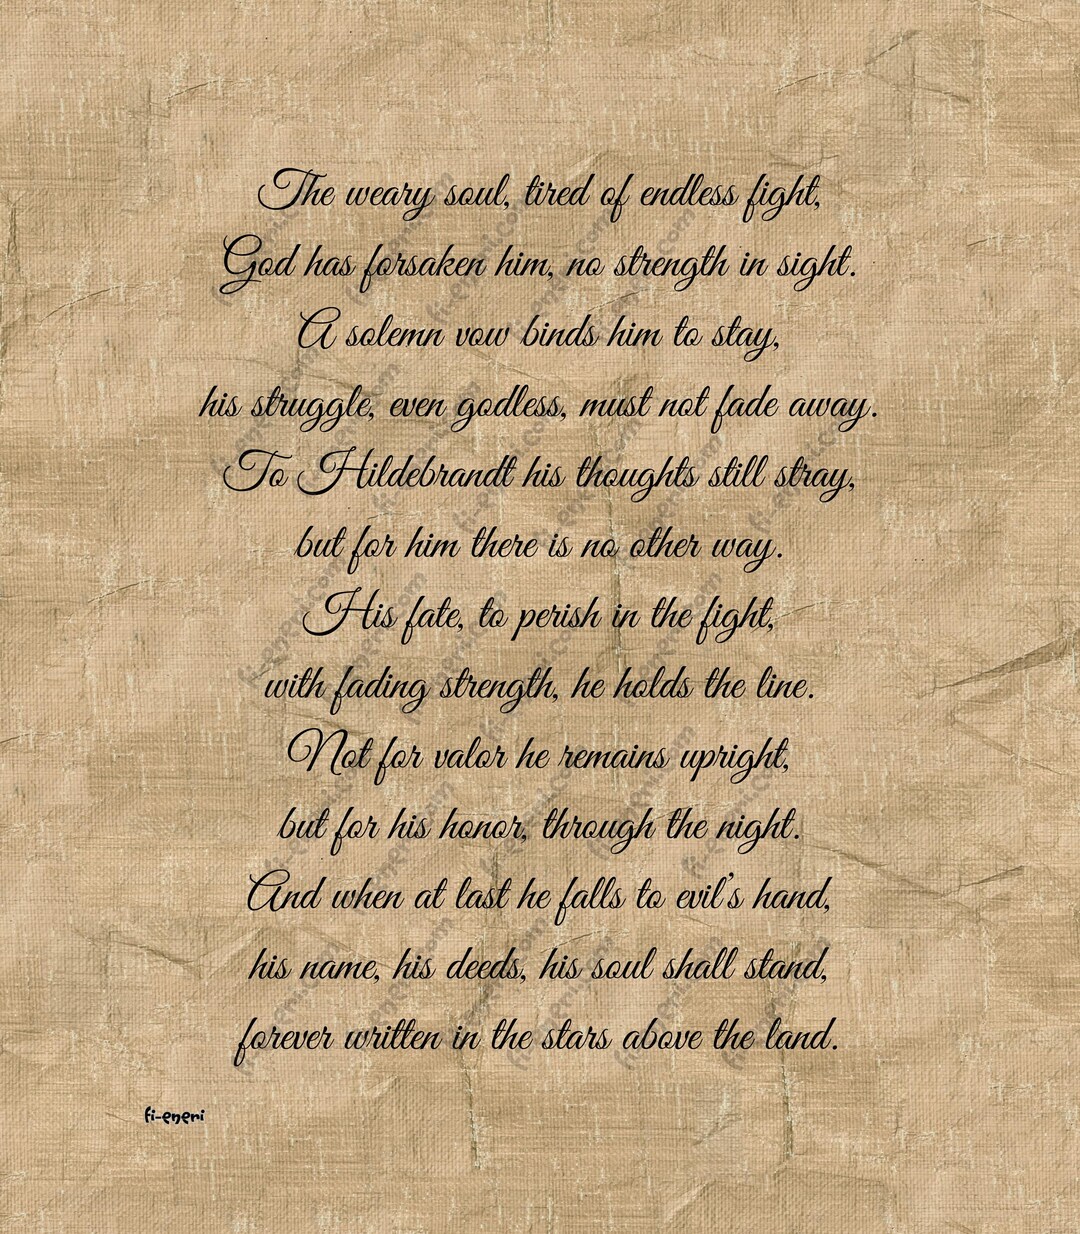 The weary soul, tired of endless fight,
God has forsaken him, no strength in sight.
A solemn vow binds him to stay,
his struggle, even godless, must not fade away.
To Hildebrandt his thoughts still stray,
but for him there is no other way.
His fate, to perish in the fight,
with fading strength, he holds the line.
Not for valor he remains upright,
but for his honor, through the night.
And when at last he falls to evil's hand,
his name, his deeds, his soul shall stand,
forever written in the stars above the land.
fi-eneni